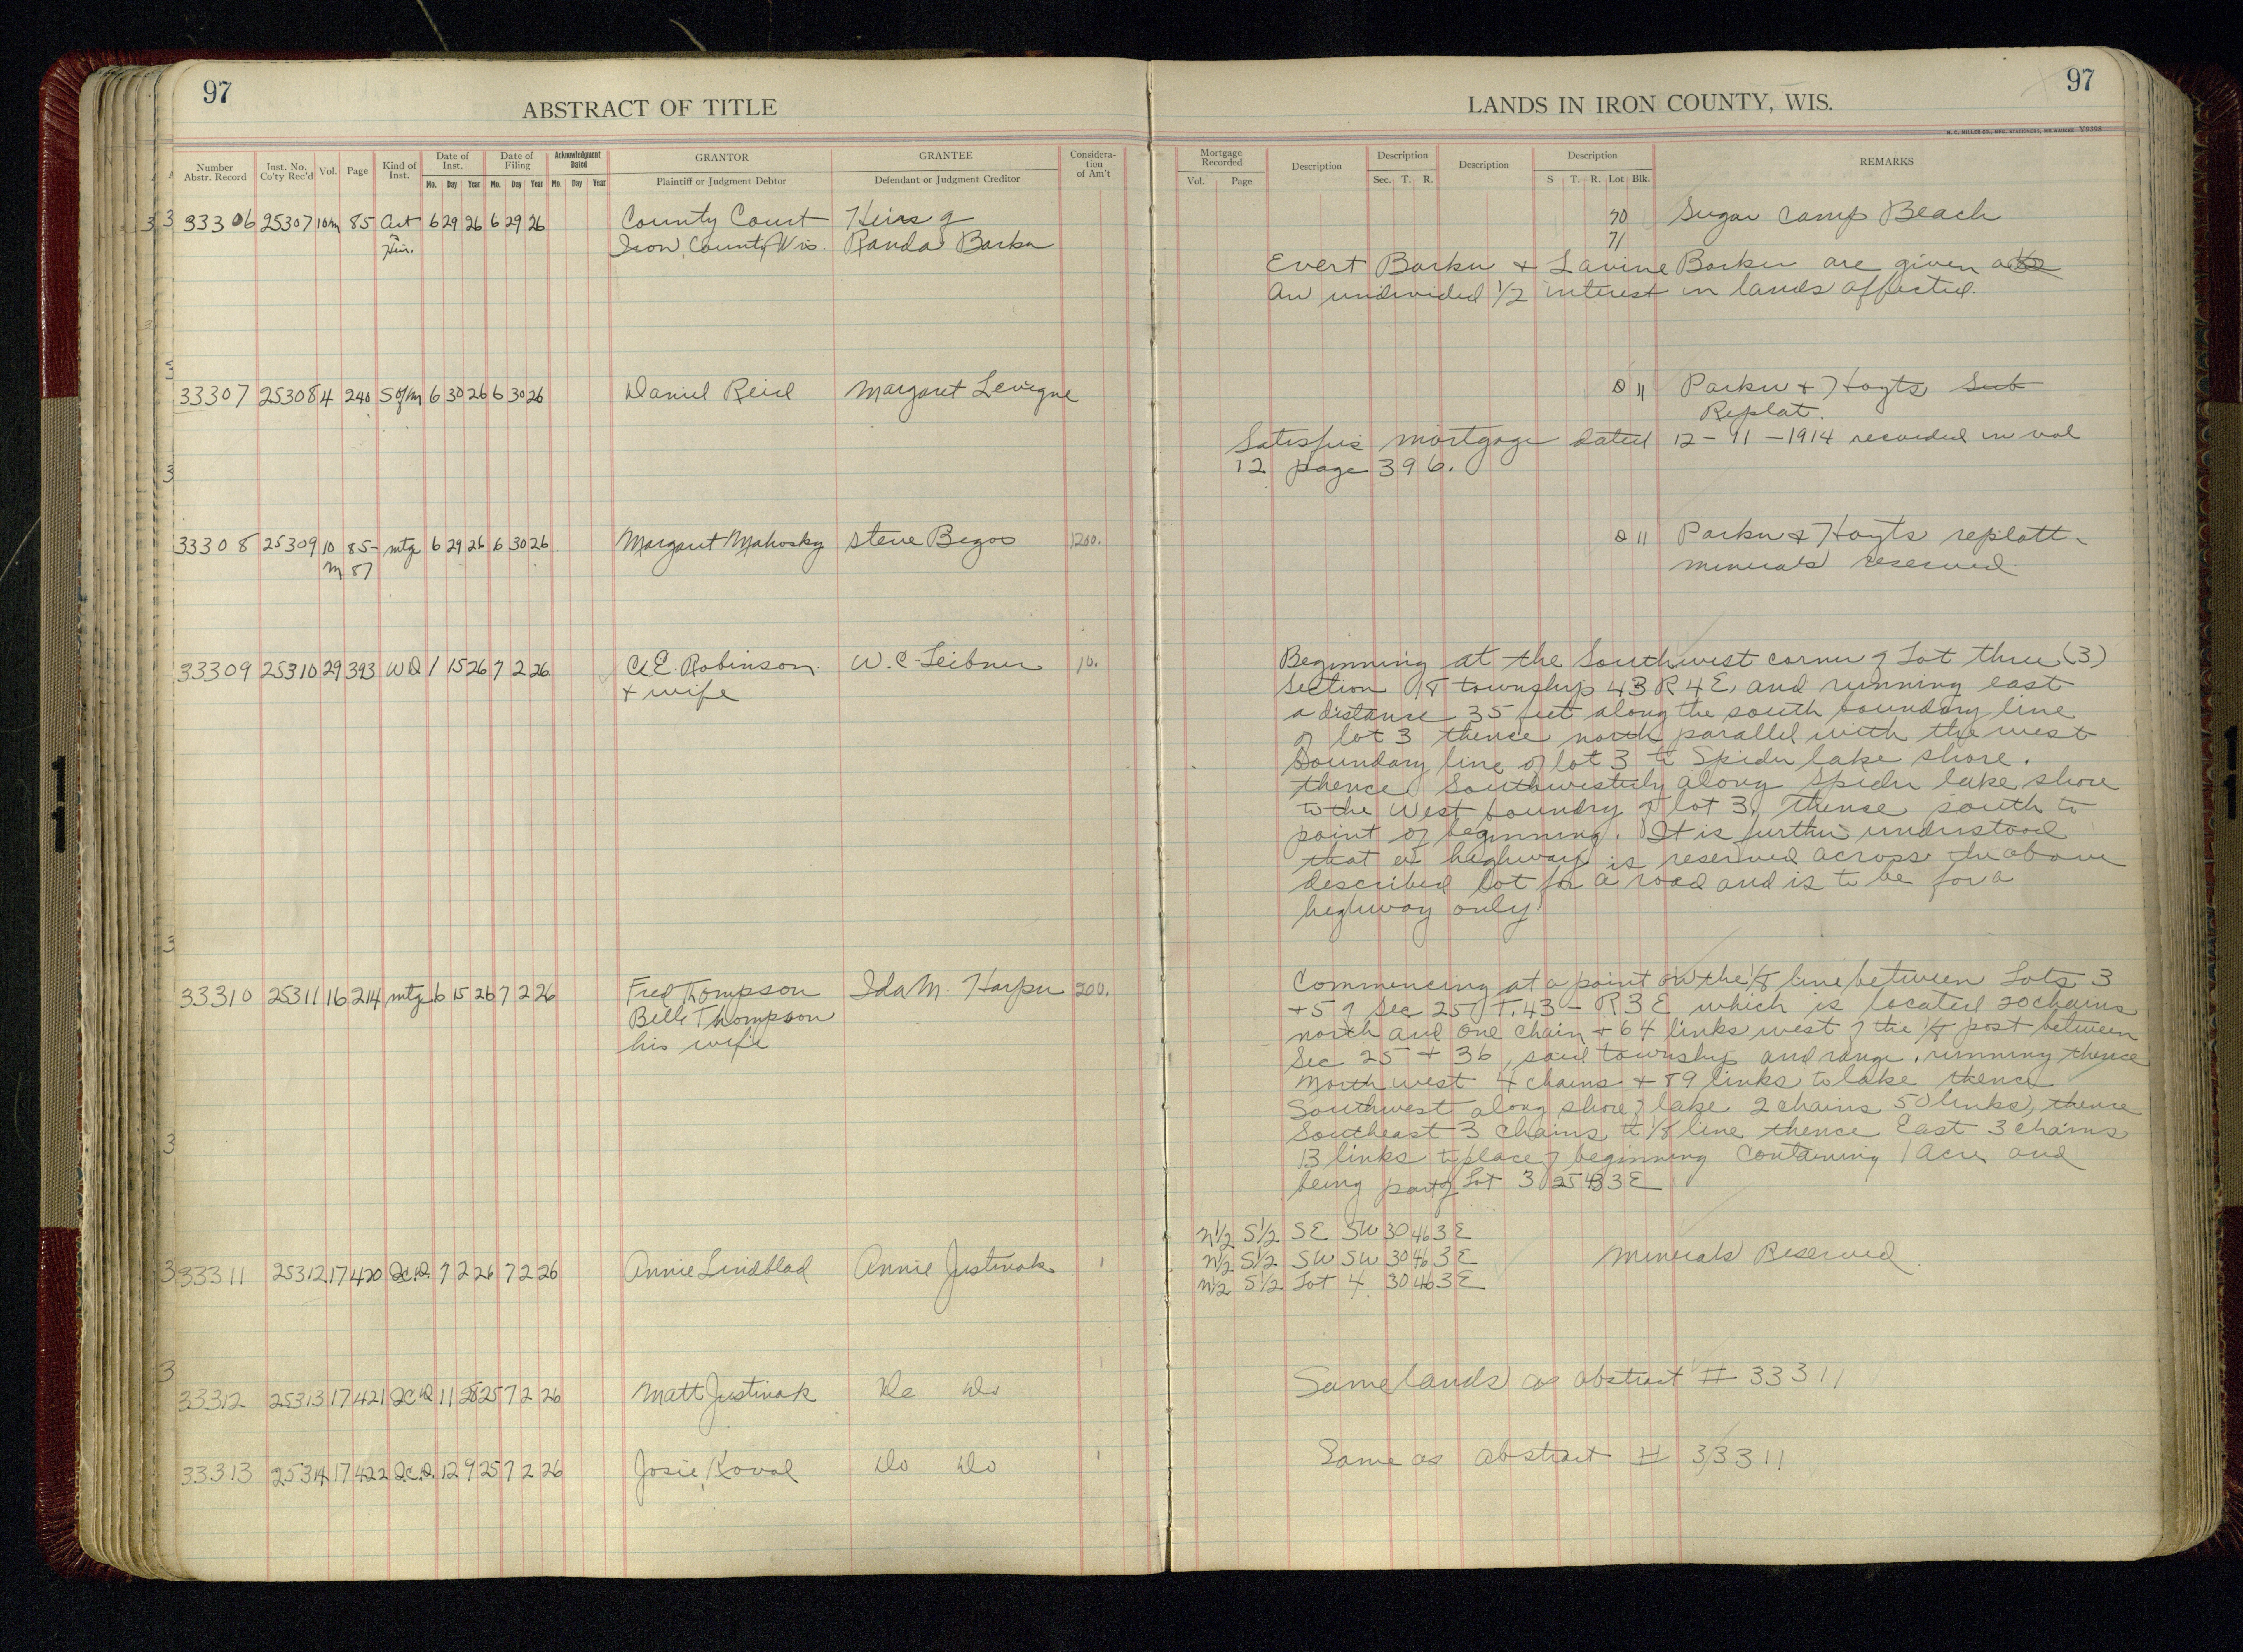 97
ABSTRACT OF TITLE
Number Abstr. Record Inst. No. Co'ty Rec'd Vol. Page Kind of Inst. Date of Inst. Mo. Day Year Date of Filing Mo. Day Year Acknowledgment Dated Mo. Day Year GRANTOR Plaintiff or Judgment Debtor GRANTEE Defendant or Judgment Creditor Considera-tion of Am't
33306 25307 10m 85 6 29 26 6 29 26 County Court Heirs of
Iron County Wis. Randa Barker
33307 25308 4 240 S of m 6 30 26 6 30 26 Daniel Reid Margaret Levigne
33308 25309 10 85- mtg 6 29 26 6 30 26 Margaret Mahosky Steve Begoo 1200.
m 87
33309 25310 29 393 WD 1 15 26 7 2 26 C.E. Robinson W.C. Leibner 10.
+ wife
33310 25311 16 214 mtg 6 15 26 7 2 26 Fred Thompson Ida M. Harper 200.
Belle Thompson
his wife
33311 25312 17 420 Q.C.D. 7 2 26 7 2 26 Annie Lindblad Annie Justinak 1
33312 25313 17 421 QCD 11 28 25 7 2 26 Matt Justinak Do Do
33313 25314 17 422 Q.C.D. 12 9 25 7 2 26 Josie Koval Do Do 1
97
LANDS IN IRON COUNTY, WIS.
H. C. MILLER CO., MFG. STATIONERS, MILWAUKEE V9398
Mortgage Recorded Vol. Page Description Description Sec. T. R. Description Description S T. R. Lot Blk. REMARKS
70 Sugar Camp Beach
71
Evert Barker + Lavine Barker are given
an undivided 1/2 interest in lands affected.
D 11 Parker + Hoyts Sub
Replat.
Satisfies mortgage dated 12-11-1914 recorded in vol
12 page 396.
D 11 Parker & Hoyts replatt-
minerals reserved.
Beginning at the Southwest corner of Lot three (3)
Section 18 township 43 R 4 E. and running east
a distance 35 feet along the south boundary line
of lot 3 thence north parallel with the west
boundary line of lot 3 to Spider lake shore.
thence Southwesterly along Spider lake shore
to the West boundry of lot 3, Thence south to
point of beginning. It is further understood
that a highway is reserved across the above
described lot for a road and is to be for a
highway only.
Commencing at a point on the 1/8 line between Lots 3
+ 5 of Sec 25 T. 43 - R 3 E which is located 20 chains
north and one chain + 64 links west of the 1/8 post between
Sec 25 + 36, said township and range, running thence
North west 4 chains + 89 links to lake thence
Southwest along shore of lake 2 chains 50 links, thence
Southeast 3 chains to 1/8 line thence East 3 chains
13 links to place of beginning containing 1 Acre and
being part of Lot 3 25 43 3 E
N 1/2 S 1/2 SE SW 30 46 3 E
N 1/2 S 1/2 SW SW 30 46 3 E Minerals Reserved
N 1/2 S 1/2 Lot 4 30 46 3 E
Same lands as abstract # 33311
Same as abstract # 33311